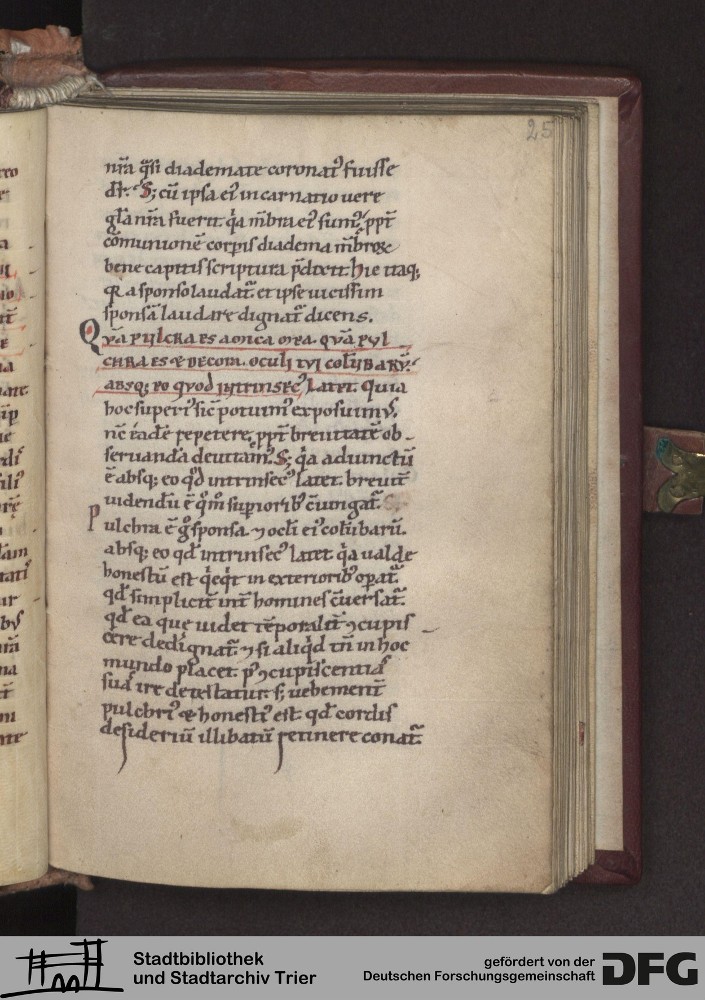 25
nr̄a q̄si diademate coronat᷑ fuisse
dr̄. S; cū ipsa ei᷒ incarnatio uere
gl̄a nr̄a fuerit. q̇a m̄bra ei᷒ sum᷒. ppt̄
cōmunionē corp̄is diadema m̄broꝝ
bene capitis scriptura p̄dixit. hic itaq;
q̄ a sponso laudat᷑. et ipse uicissim
sponsā laudare dignat᷑ dicens.
Qvā pvlchra es amica mea. qvā pvl
chra es & decora. ocvli tvi colv̄barv̄.
absq; eo qvod intrinsec᷒ latet. quia
hoc superi᷒ sic̄ potuim᷒ exposuim᷒,
nc̄ eadē repetere. ppt̄ breuitatē ob-
seruandā deuitam᷒. S; q̇a adiunctū
ē absq; eo qd̄ intrinsec᷒ latet. breuit̄
uidendū ē qm̄ superiorib᷒ c̄uingat᷑.
Pulchra ē ḡ sponsa ⁊ ocl̄i ei᷒ colūbarū.
absq; eo qd̄ intrinsec᷒ latet. q̇a ualde
honestū est q̇cq̇t in exteriorib᷒ opat᷑.
qd̄ simplicit̄ int̄ homines c̄uersat᷑.
qd̄ ea que uidet tēporalit̄ ꝯcupis
cere dedignat᷑. ⁊ si aliq̇d tn̄ in hoc
mundo placet. p᷒ ꝯcupiscentiā
suā ire detestatur. s; uehement̄
pulchri᷒ & honesti᷒ est. qd̄ cordis
desideriū illibatū retinere conat᷑.
Stadtbibliothek
und Stadtarchiv Trier
gefördert von der
Deutschen Forschungsgemeinschaft
DFG